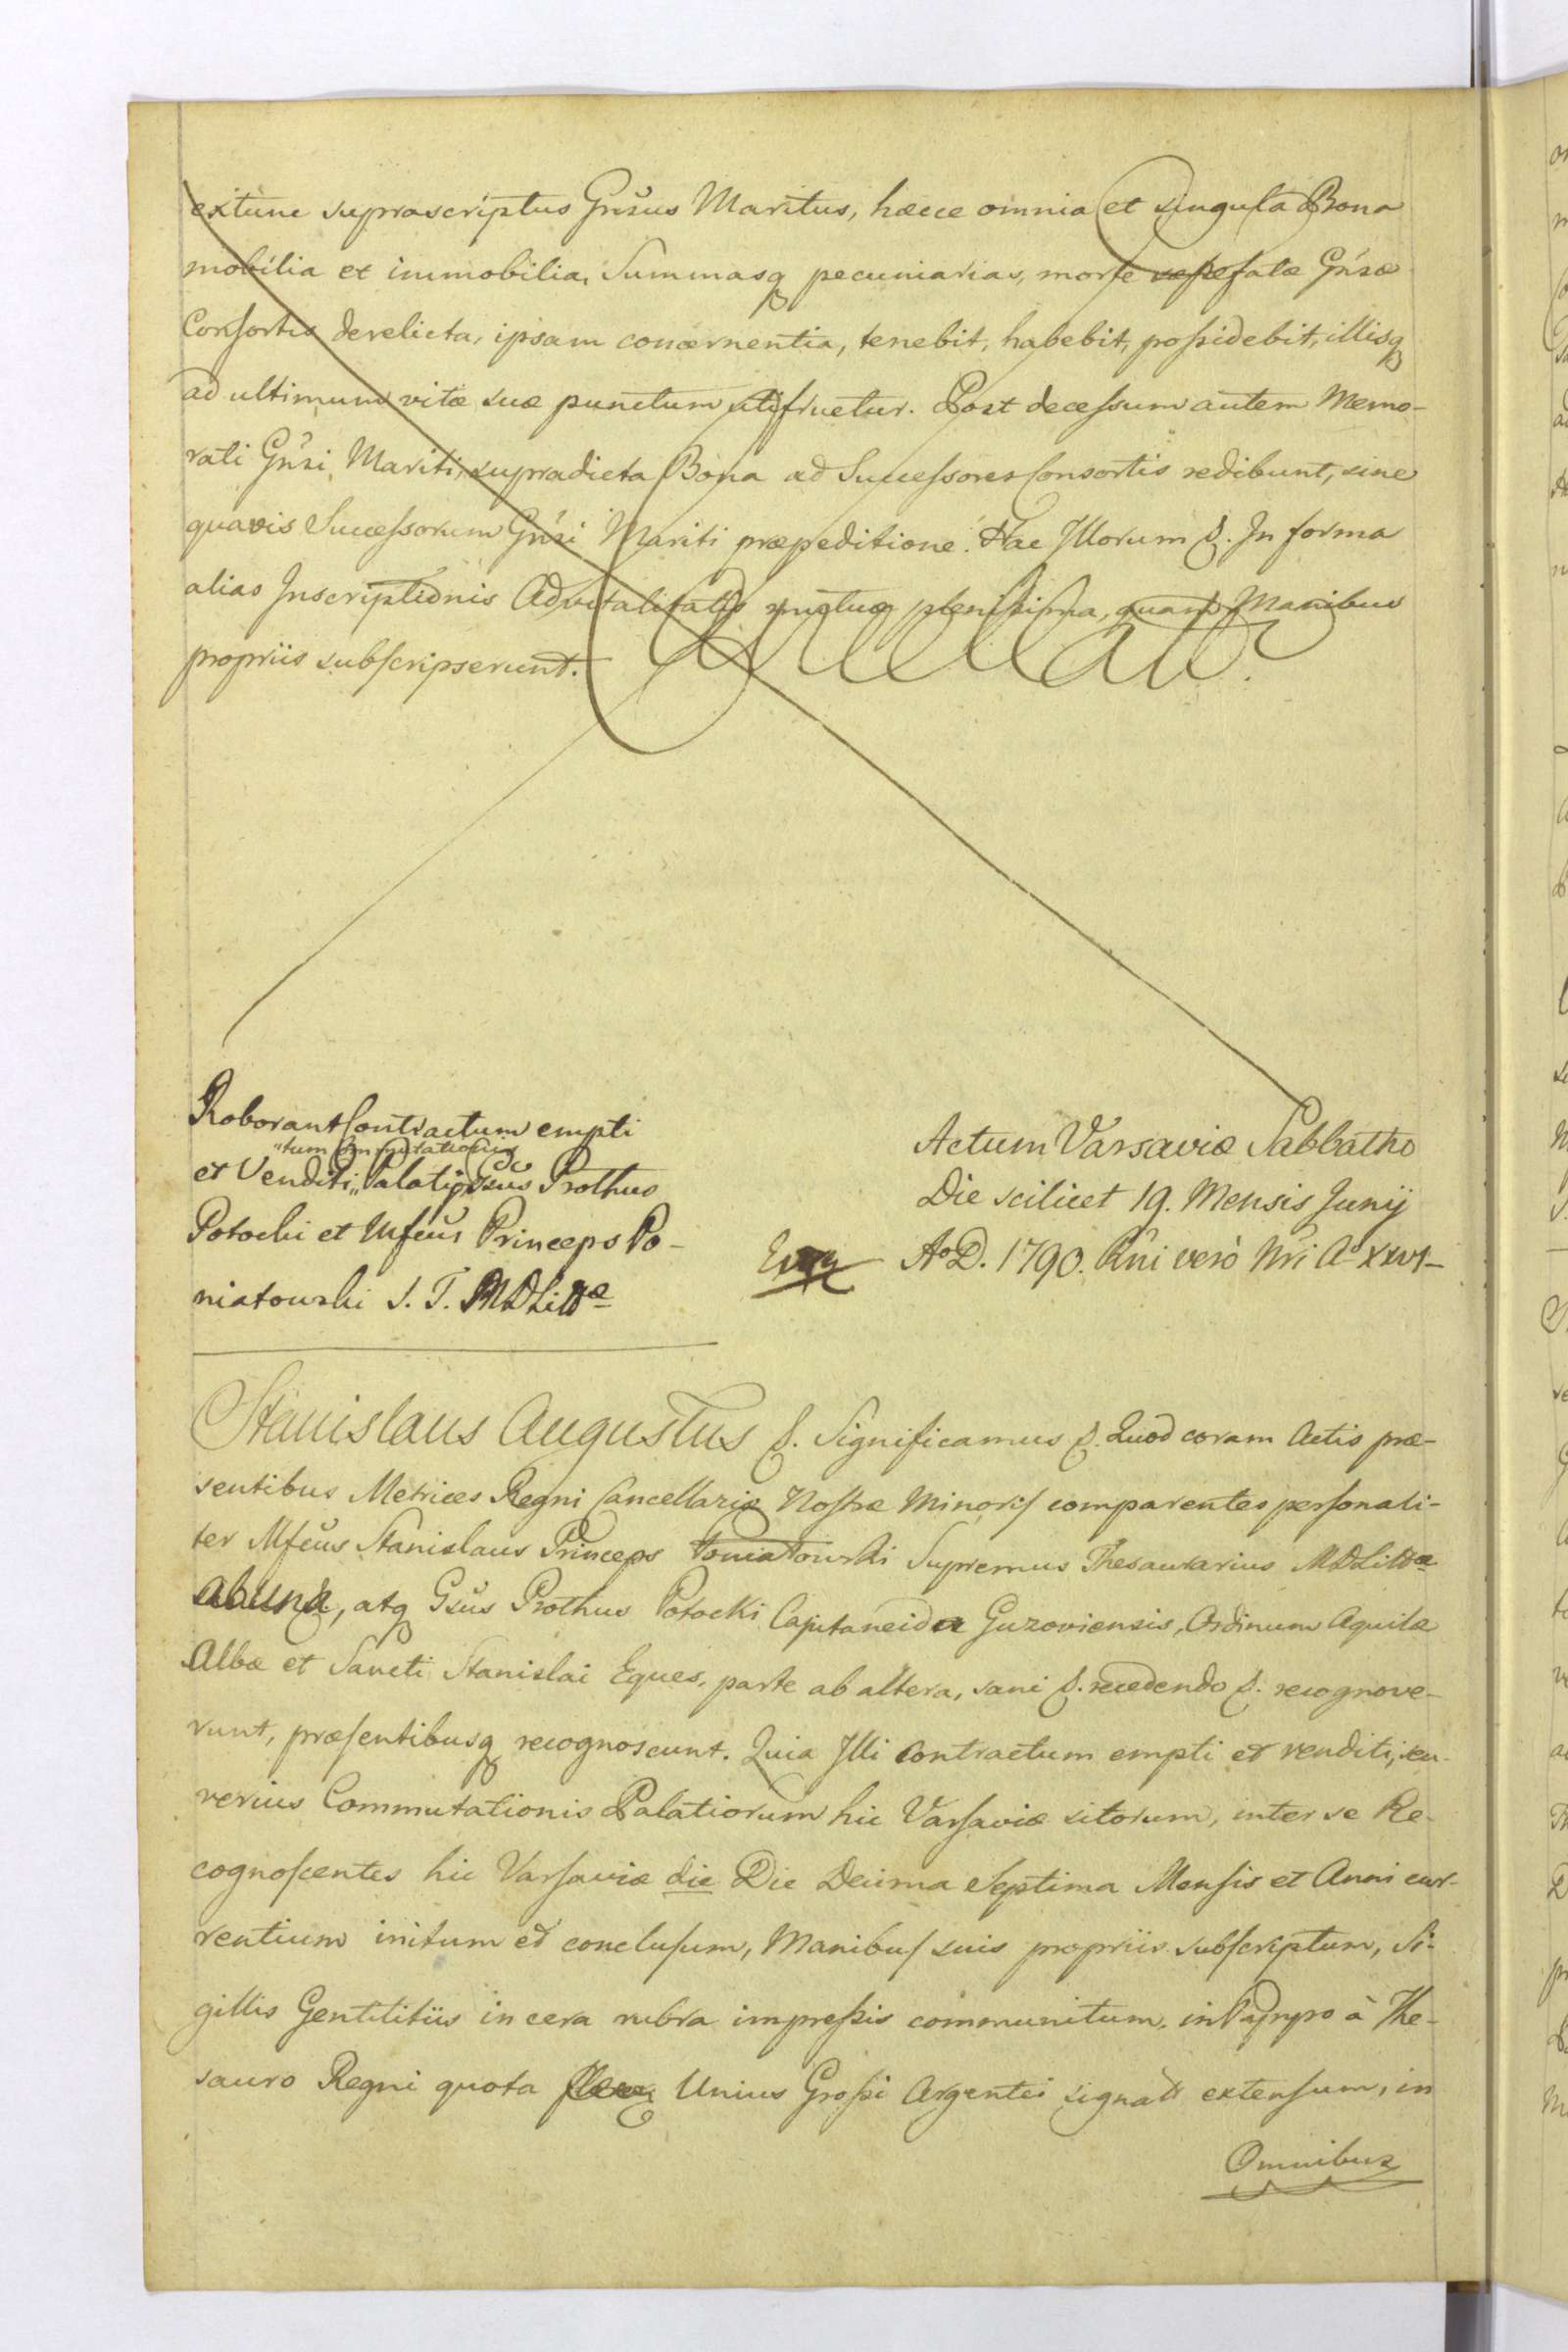 extunc suprascriptus Gnsus Maritus, hæcce omnia et singula Bona
mobilia et immobilia, Summasq pecuniarias, morte sæpefatæ Gnsæ
Consortis derelicta, ipsam concernentia, tenebit, habebit, possidebit, illisq
ad ultimum vitæ suæ punctum utifruetur. Post decessum autem Memo-
rati Gnsi Mariti, supradicta Bona ad Successores Consortis redibunt, sine
quavis Successorum Gnsi Mariti præpeditione. Hac Illorum &. In forma
alias Inscriptionis Advitalitatis mutuæ plenissima, quam Manibus
propriis subscripserunt.
Roborant Contractum empti
"tum Commutationis
et Venditi,, Palatij Gsus Prothus
Potocki et Mfcus Princeps Po-
niatowski S. T. MDLittæ
Actum Varsaviæ Sabbatho
Die scilicet 19. Mensis Junij
Extr. Ao D. 1790. Rni verò Nri Ao XXVI-
Stanislaus Augustus &. Significamus &. Quod coram Actis præ-
sentibus Metrices Regni Cancellariæ Nostræ Minoris comparentes personali-
ter Mfcus Stanislaus Princeps Poniatowski Supremus Thesaurarius MDLittæ
ab una, atq Gsus Prothus Potocki Capitaneides Guzoviensis, Ordinum Aquilæ
Albæ et Sancti Stanislai Eques, parte ab altera, sani &. recedendo &. recognove-
runt, præsentibusq recognoscunt. Quia Illi Contractum empti et venditi, seu-
verius Commutationis Palatiorum hic Varsaviæ sitorum, inter se Re-
cognoscentes hic Varsaviæ die Die Decima Septima Mensis et Anni cur-
rentium initum et conclusum, Manibus suis propriis subscriptum, Si-
gillis Gentilitiis in cera rubra impressis communitum, in Papyro à The-
sauro Regni quota Unius Grossi Argentei signat extensum, in
Omnibus